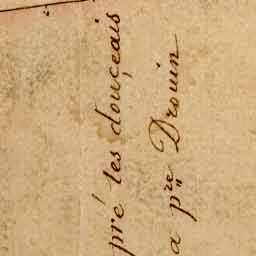 pré les douçeais
a pre Drouin